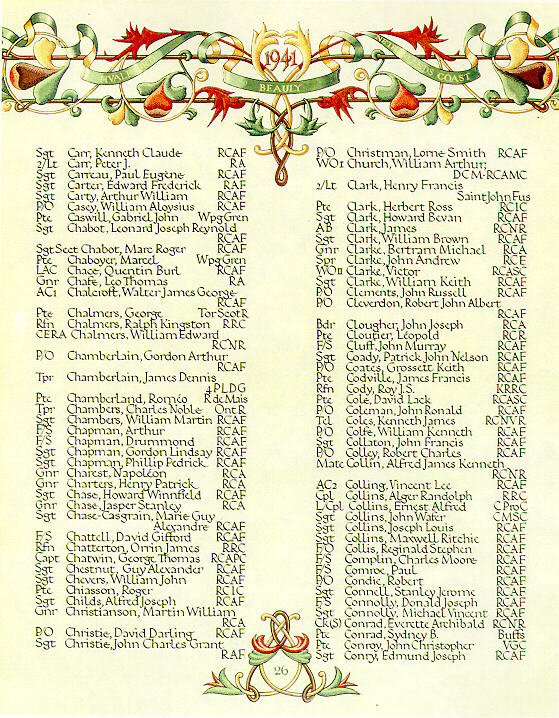 1941
BEAULY
COAST
Sgt Carr, Kenneth Claude RCAF
2/Lt Carr, Peter J. RA
Sgt Carreau, Paul Eugene RCAF
Sgt Carter, Edward Frederick RAF
Sgt Carty, Arthur William RCAF
P/O Casey, William Aloysius RCAF
Pte Caswill, Gabriel John Wpg Gren
Sgt Chabot, Leonard Joseph Reynold
RCAF
Sgt Sect Chabot, Marc Roger RCAF
Pte Chaboyer, Marcel Wpg Gren
LAC Chace, Quentin Burl RCAF
Gnr Chafe, Leo Thomas RA
AC1 Chalcroft, Walter James George
RCAF
Pte Chalmers, George Tor Scot R
Rfn Chalmers, Ralph Kingston RRC
CERA Chalmers, William Edward
RCNR
P/O Chamberlain, Gordon Arthur
RCAF
Tpr Chamberlain, James Dennis
4 PLDG
Pte Chamberland, Roméo R de Mais
Tpr Chambers, Charles Noble Ont R
Sgt Chambers, William Martin RCAF
F/S Chapman, Arthur RCAF
F/S Chapman, Drummond RCAF
Sgt Chapman, Gordon Lindsay RCAF
Sgt Chapman, Phillip Pedrick RCAF
Gnr Charest, Napoléon RCA
Gnr Charters, Henry Patrick RCA
Sgt Chase, Howard Winnfield RCAF
Gnr Chase, Jasper Stanley RCA
Sgt Chasse-Casgrain, Marie Guy
Alexandre RCAF
F/S Chattell, David Gifford RCAF
Rfn Chatterton, Orrin James RRC
Capt Chatwin, George Thomas RCAPC
Sgt Chestnut, Guy Alexander RCAF
Sgt Chevers, William John RCAF
Pte Chiasson, Roger RCIC
Sgt Childs, Alfred Joseph RCAF
Gnr Christianson, Martin William
RCA
P/O Christie, David Darling RCAF
Sgt Christie, John Charles Grant
RAF
P/O Christman, Lorne Smith RCAF
WO1 Church, William Arthur;
DCM-RCAMC
2/Lt Clark, Henry Francis
Saint John Fus
Pte Clark, Herbert Ross RCIC
Sgt Clark, Howard Bevan RCAF
AB Clark, James RCNR
Sgt Clark, William Brown RCAF
Gnr Clarke, Bertram Michael RCA
Spr Clarke, John Andrew RCE
WOII Clarke, Victor RCASC
Sgt Clarke, William Keith RCAF
P/O Clements, John Russell RCAF
P/O Cleverdon, Robert John Albert
RCAF
Bdr Clougher, John Joseph RCA
Pte Cloutier, Léopold RCR
F/S Cluff, John Murray RCAF
Sgt Coady, Patrick John Nelson RCAF
P/O Coates, Grossett Keith RCAF
Pte Codville, James Francis RCAF
Rfn Cody, Roy J.S. KRRC
Pte Cole, David Lack RCASC
P/O Coleman, John Ronald RCAF
Tel Coles, Kenneth James RCNVR
P/O Colfe, William Kenneth RCAF
Sgt Collaton, John Francis RCAF
P/O Colley, Robert Charles RCAF
Mate Collin, Alfred James Kenneth
RCNR
AC2 Colling, Vincent Lee RCAF
Cpl Collins, Alger Randolph RRC
L/Cpl Collins, Ernest Alfred CProC
Sgt Collins, John Water CMSC
Sgt Collins, Joseph Louis RCAF
Sgt Collins, Maxwell Ritchie RCAF
F/O Collis, Reginald Stephen RCAF
F/S Complin, Charles Moore RCAF
F/S Comroe, Paul RCAF
P/O Condie, Robert RCAF
Sgt Connell, Stanley Jerome RCAF
F/S Connolly, Donald Joseph RCAF
Sgt Connolly, Michael Vincent RCAF
Ck(S) Conrad, Everette Archibald RCNR
Pte Conrad, Sydney B. Buffs
Pte Conroy, John Christopher VGC
Sgt Conry, Edmund Joseph RCAF
26